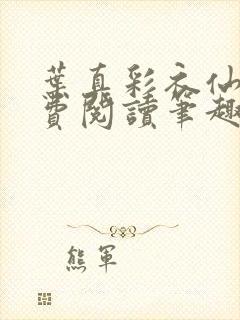 葉真彩衣仙
費閱讀筆趣
熊軍